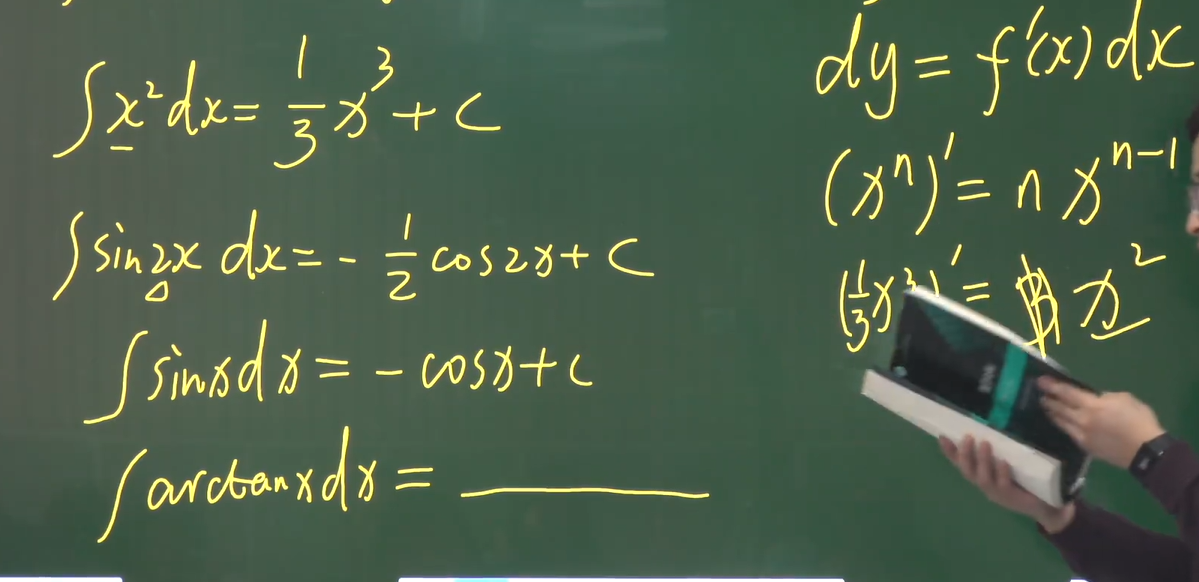 ∫x²dx = 1/3 x³ + C
∫sin2x dx = - 1/2 cos2x + C
∫sinxdx = - cosx + C
∫arctanxdx = ______
dy = f'(x)dx
(xⁿ)' = n xⁿ⁻¹
(1/3 x³)' = x²